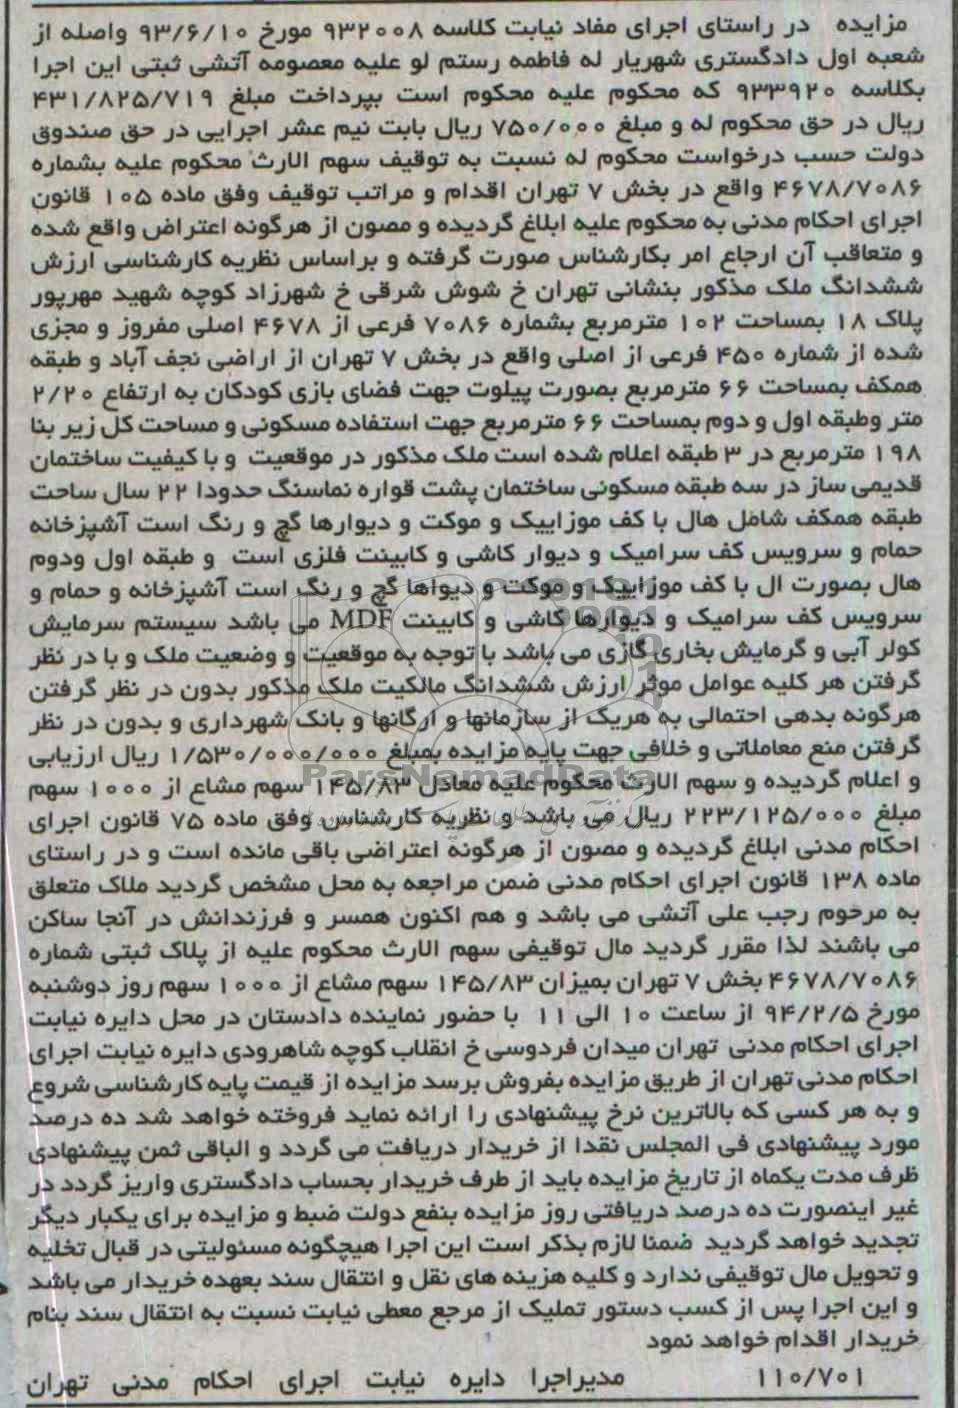 مزایده در راستای اجرای مفاد نیابت کلاسه ۹۳۲۰۰۸ مورخ ۹۳/۶/۱۰ واصله از
شعبه اول دادگستری شهریار له فاطمه رستم لو علیه معصومه آتشی ثبتی این اجرا
بکلاسه ۹۳۳۹۲۰ که محکوم علیه محکوم است بپرداخت مبلغ ۴۳۱/۸۲۵/۷۱۹
ریال در حق محکوم له و مبلغ ۷۵۰/۰۰۰ ریال بابت نیم عشر اجرایی در حق صندوق
دولت حسب درخواست محکوم له نسبت به توقیف سهم الارث محکوم علیه بشماره
۴۶۷۸/۷۰۸۶ واقع در بخش ۷ تهران اقدام و مراتب توقیف وفق ماده ۱۰۵ قانون
اجرای احکام مدنی به محکوم علیه ابلاغ گردیده و مصون از هرگونه اعتراض واقع شده
و متعاقب آن ارجاع امر بکارشناس صورت گرفته و براساس نظریه کارشناسی ارزش
ششدانگ ملک مذکور بنشانی تهران خ شوش شرقی خ شهرزاد کوچه شهید مهرپور
پلاک ۱۸ بمساحت ۱۰۲ مترمربع بشماره ۷۰۸۶ فرعی از ۴۶۷۸ اصلی مفروز و مجزی
شده از شماره ۴۵۰ فرعی از اصلی واقع در بخش ۷ تهران از اراضی نجف آباد و طبقه
همکف بمساحت ۶۶ مترمربع بصورت پیلوت جهت فضای بازی کودکان به ارتفاع ۲/۲۰
متر وطبقه اول و دوم بمساحت ۶۶ مترمربع جهت استفاده مسکونی و مساحت کل زیر بنا
۱۹۸ مترمربع در ۳ طبقه اعلام شده است ملک مذکور در موقعیت و با کیفیت ساختمان
قدیمی ساز در سه طبقه مسکونی ساختمان پشت قواره نماسنگ حدودا ۲۲ سال ساخت
طبقه همکف شامل هال با کف موزاییک و موکت و دیوارها گچ و رنگ است آشپزخانه
حمام و سرویس کف سرامیک و دیوار کاشی و کابینت فلزی است و طبقه اول ودوم
هال بصورت ال با کف موزاییک و موکت و دیواها گچ و رنگ است آشپزخانه و حمام و
سرویس کف سرامیک و دیوارها کاشی و کابینت MDF می باشد سیستم سرمایش
کولر آبی و گرمایش بخاری گازی می باشد با توجه به موقعیت و وضعیت ملک و با در نظر
گرفتن هر کلیه عوامل موثر ارزش ششدانگ مالکیت ملک مذکور بدون در نظر گرفتن
هرگونه بدهی احتمالی به هریک از سازمانها و ارگانها و بانک شهرداری و بدون در نظر
گرفتن منع معاملاتی و خلافی جهت پایه مزایده بمبلغ ۱/۵۳۰/۰۰۰/۰۰۰ ریال ارزیابی
و اعلام گردیده و سهم الارث محکوم علیه معادل ۱۴۵/۸۳ سهم مشاع از ۱۰۰۰ سهم
مبلغ ۲۲۳/۱۲۵/۰۰۰ ریال می باشد و نظریه کارشناس وفق ماده ۷۵ قانون اجرای
احکام مدنی ابلاغ گردیده و مصون از هرگونه اعتراضی باقی مانده است و در راستای
ماده ۱۳۸ قانون اجرای احکام مدنی ضمن مراجعه به محل مشخص گردید ملاک متعلق
به مرحوم رجب علی آتشی می باشد و هم اکنون همسر و فرزندانش در آنجا ساکن
می باشند لذا مقرر گردید مال توقیفی سهم الارث محکوم علیه از پلاک ثبتی شماره
۴۶۷۸/۷۰۸۶ بخش ۷ تهران بمیزان ۱۴۵/۸۳ سهم مشاع از ۱۰۰۰ سهم روز دوشنبه
مورخ ۹۴/۲/۵ از ساعت ۱۰ الی ۱۱ با حضور نماینده دادستان در محل دایره نیابت
اجرای احکام مدنی تهران میدان فردوسی خ انقلاب کوچه شاهرودی دایره نیابت اجرای
احکام مدنی تهران از طریق مزایده بفروش برسد مزایده از قیمت پایه کارشناسی شروع
و به هر کسی که بالاترین نرخ پیشنهادی را ارائه نماید فروخته خواهد شد ده درصد
مورد پیشنهادی فی المجلس نقدا از خریدار دریافت می گردد و الباقی ثمن پیشنهادی
ظرف مدت یکماه از تاریخ مزایده باید از طرف خریدار بحساب دادگستری واریز گردد در
غیر اینصورت ده درصد دریافتی روز مزایده بنفع دولت ضبط و مزایده برای یکبار دیگر
تجدید خواهد گردید ضمنا لازم بذکر است این اجرا هیچگونه مسئولیتی در قبال تخلیه
و تحویل مال توقیفی ندارد و کلیه هزینه های نقل و انتقال سند بعهده خریدار می باشد
و این اجرا پس از کسب دستور تملیک از مرجع معطی نیابت نسبت به انتقال سند بنام
خریدار اقدام خواهد نمود
۱۱۰/۷۰۱ مدیراجرا دایره نیابت اجرای احکام مدنی تهران
ParsNamadData